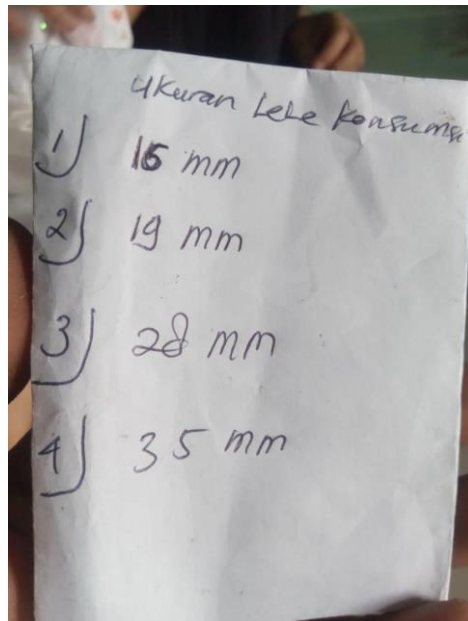 Ukuran Lele Konsumsi
1) 16 mm
2) 19 mm
3) 28 mm
4) 35 mm